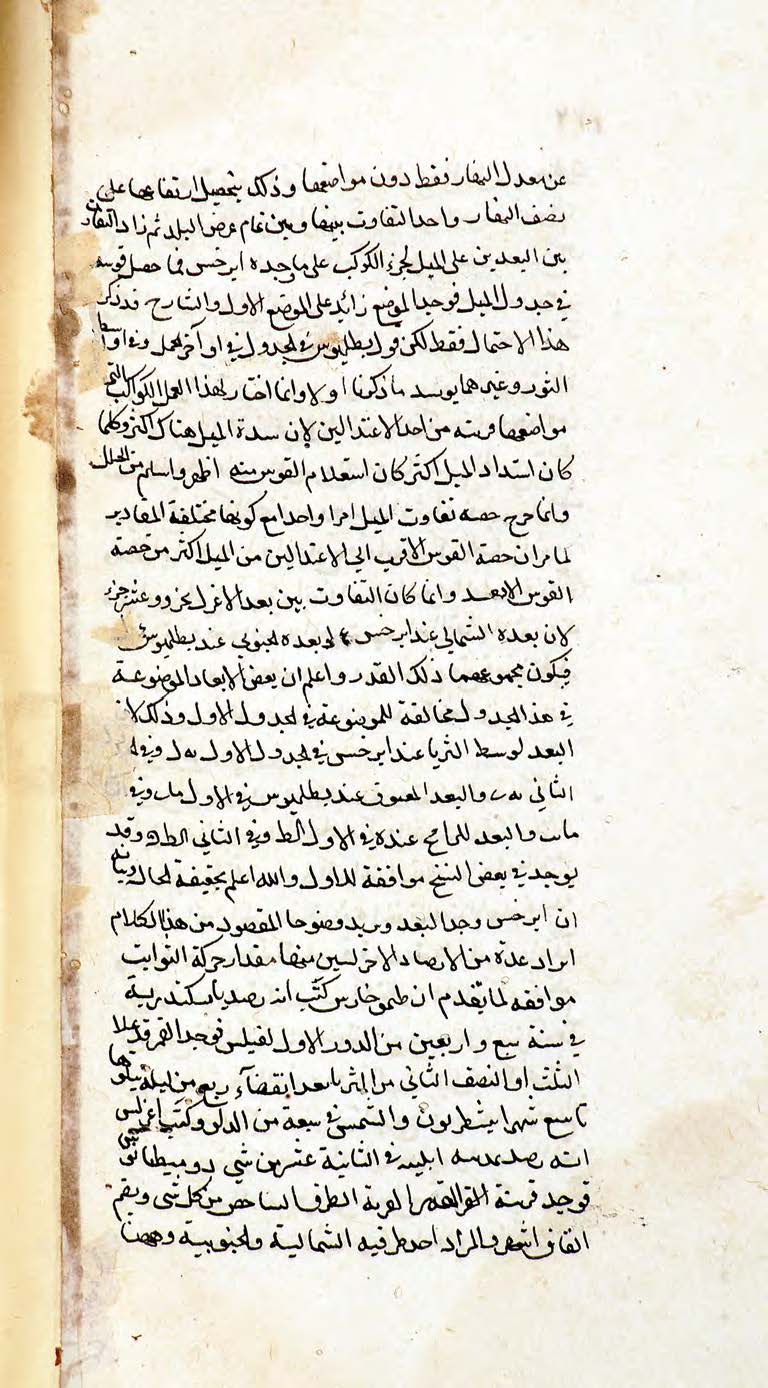 عن معدل النهار فقط دون مواضعها وذلك بتحصيل ارتفاعها على
نصف النهار واحد التفاوت بينها وبين تمام عرض البلد ثم زاد التفاوت
بين البعدين على الميل لجزء الكوكب على ما وجده ابرخس فما حصل قوسه
في جدول الميل فوجد الموضع زائد على الموضع الاول والشارح قد ذكر
هذا الاحتمال فقط لكن قول بطلميوس في الجدول في اواخر الحمل وفي اواسط
الثور وغيرهما يوسد ما ذكرنا اولا وانما اختار لهذا العمل الكواكب التي
مواضعها قريبة من احد الاعتدالين لان سدة الميل هناك اكثر وكلما
كان استداد الميل اكثر كان استعلام القوس منه اظهر واسلم من الخلل
وانما خرج حصه تفاوت الميل امرا واحدا مع كونها مختلفة المقادير
لما مر ان حصة القوس الاقرب الى الاعتدالين من الميل اكثر من حصة
القوس الابعد وانما كان التفاوت بين بعد الاعزل بجزو وعشر جزء
لان بعده الشمالي عند ابرخس وبعده الجنوبي عند بطلميوس
فيكون مجموعهما ذلك القدر واعلم ان بعض الابعاد الموضوعة
في هذا الجدول مخالفة للموضوعة في الجدول الاول وذلك لان
البعد لوسط الثريا عند ابرخس في الجدول الاول وفي
الثاني والبعد العيوق عند بطلميوس في الاول وفي
والبعد للرامح عنده في الاول وفي الثاني وقد
يوجد في بعض النسخ موافقة للاول والله اعلم بحقيقة الحال وبيانه
ان ابرخس وجد البعد ويريد وضوحا المقصود من هذا الكلام
ايراد عدة من الارصاد الاخر لتبين منها مقدار حركة الثوابت
موافقه لما تقدم ان طيموخارس كتب انه رصد باسكندرية
في سنة سبع واربعين من الدور الاول لفيلبس فوجد القمر قد علا
الثلث او النصف الثاني من الثريا بعد انقضاء ربع من ليلة يتلوها
تاسع شهر ابنثطريون والشمس في سبعة من الدلو وكتب اغربس
انه رصد ابليه في الثانية عشر من سني دوميطيانوس
فوجد قرنة القمر الطرف من كل شي وبضم
القاف اشهر والمراد احد طرفيه الشمالية والجنوبية وههنا